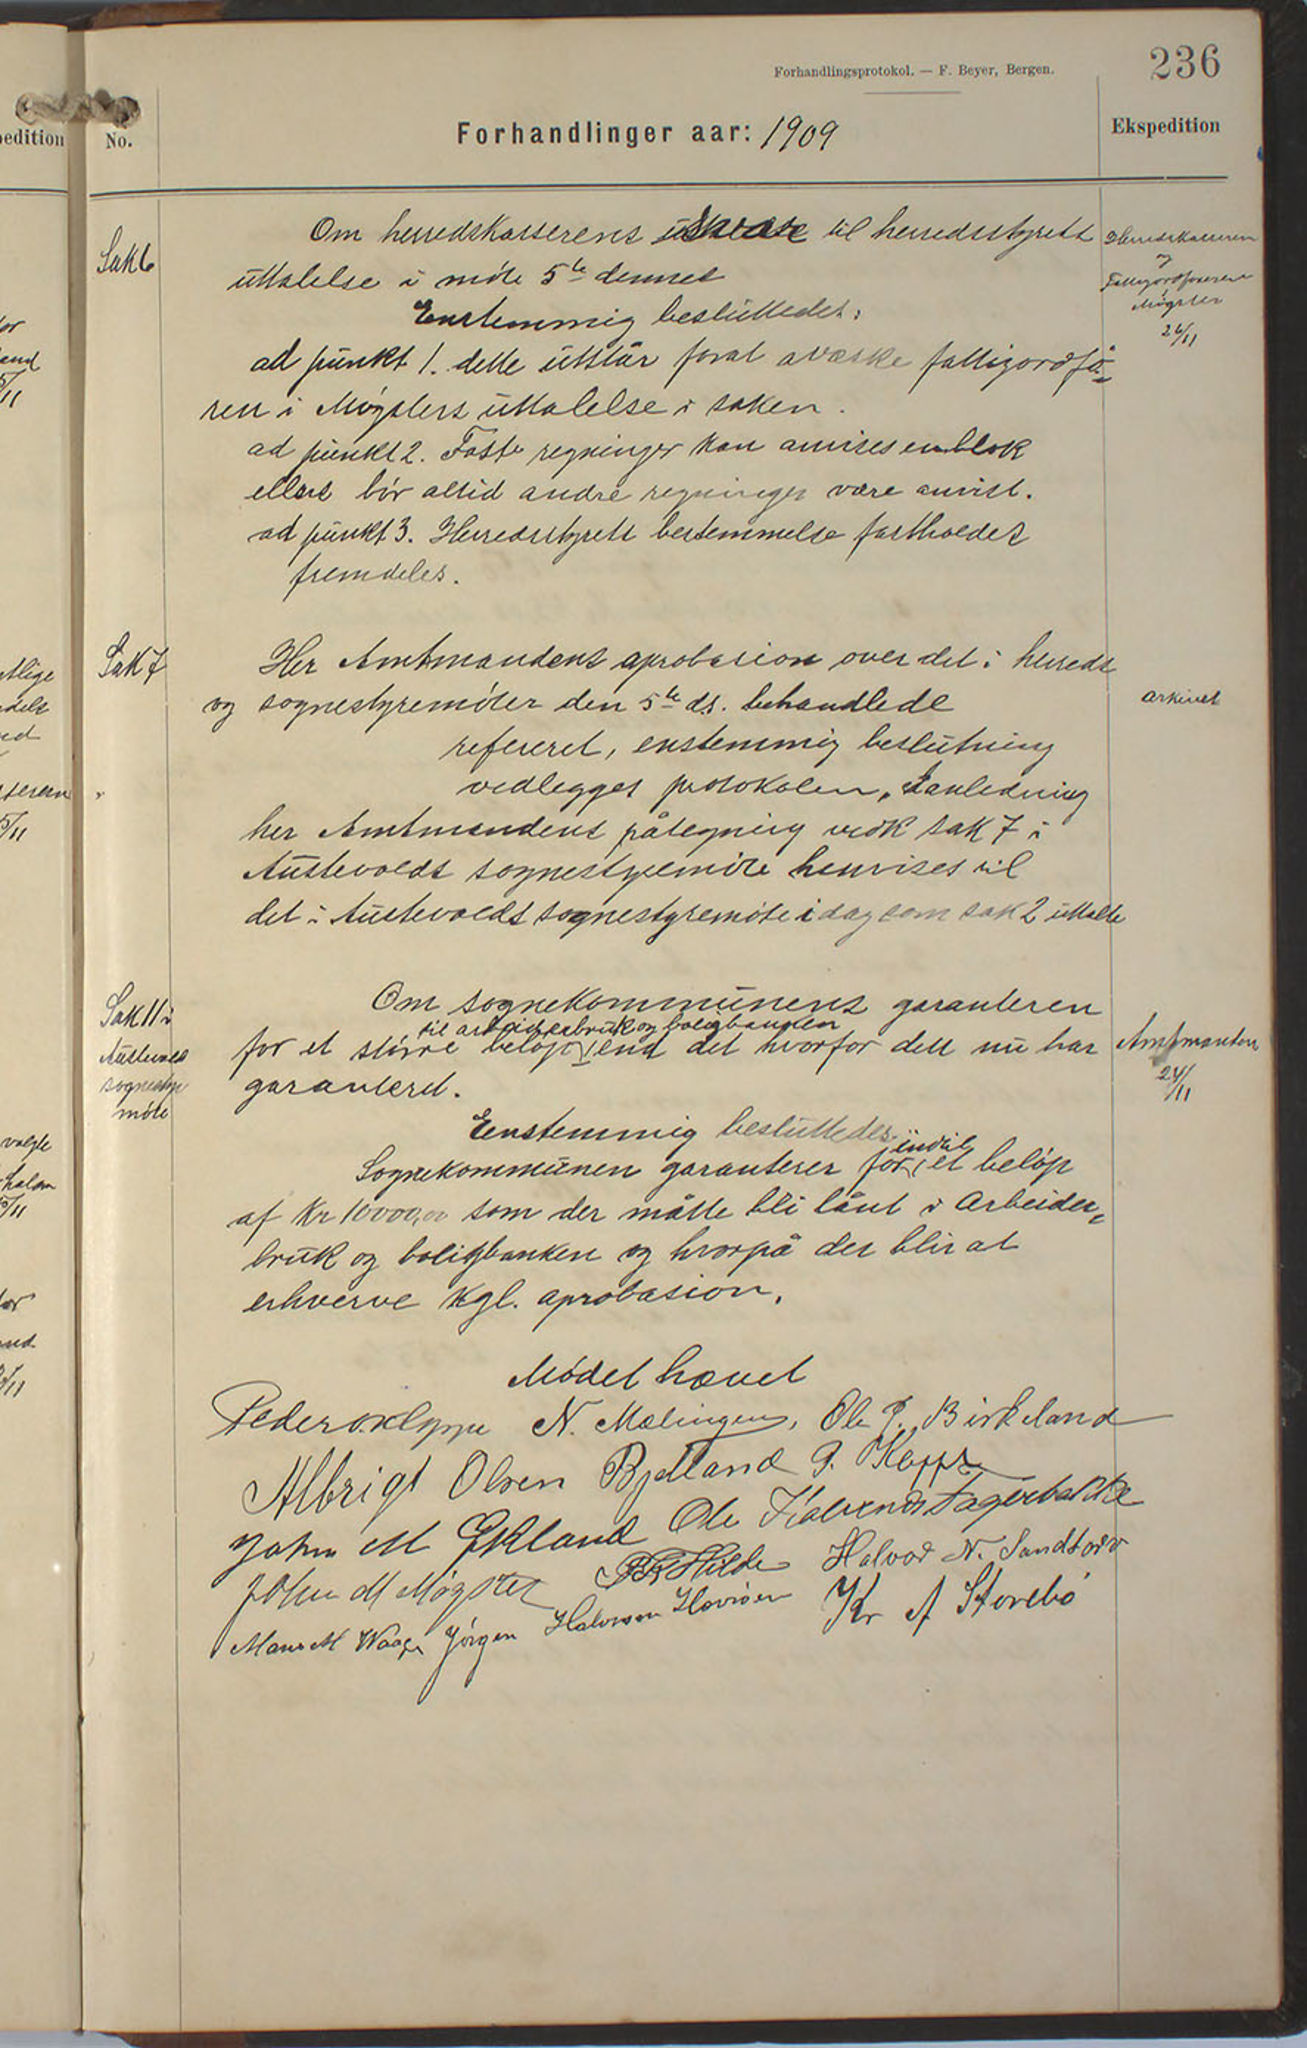 236
Forhandlingsprotokol. — F. Beyer, Bergen.
No.
Forhandlinger aar: 1909
Ekspedition
Sak 6
Om herredskasserens til herredsstyrets
uttalelse i møte 5te dennes
Enstemmig besluttedes:
ad punkt 1. dette utstår forat avæske fattigordfø-
ren i Møgsters uttalelse i saken.
ad punkt 2. Faste regninger kan anvises enblok
ellers bør altid andre regninger være anvist.
ad punkt 3. Herredsstyrets bestemmelse fastholdes
fremdeles.
Herredskasseren
og
Fattigordføreren
Møgster
26/11
Sak 7
Her Amtmandens aprobasion over det i herreds
og sognestyremøter den 5te ds. behandlede
refereret, enstemmig beslutning
vedlegges protokolen, I anledning
her Amtmandens påtegning vedk sak 7 i
Austevolds sognestyremøte henvises til
det i Austevolds sognestyremøte idag som sak 2 uttalte
arkivet
Sak 11 i
Austevold
sognestyre
møte
Om sognekommunens garanteren
til arbeiderbruk og boligbanken
for et større beløp end det hvorfor dett nu har
garanteret.
Amtmanden
24/11
Enstemmig besluttedes
indtil
Sognekommunen garanterer for et beløp
af Kr 10000,00 som der måtte bli lånt i Arbeider-
bruk og boligbanken og hvorpå der blir at
erhverve kgl. aprobasion.
Mødet hævet
Peder O. Kleppe N. Malingen, Ole P. Birkeland
Albrigt Olsen Bjelland P. Kopp
John M Ekland Ole Halvends Fagerbakke
John M Møgster P R Hilde Halvor N. Sandtorv
Mans M Waage Jørgen Halvorsen Hevrøen Kr A Storebø